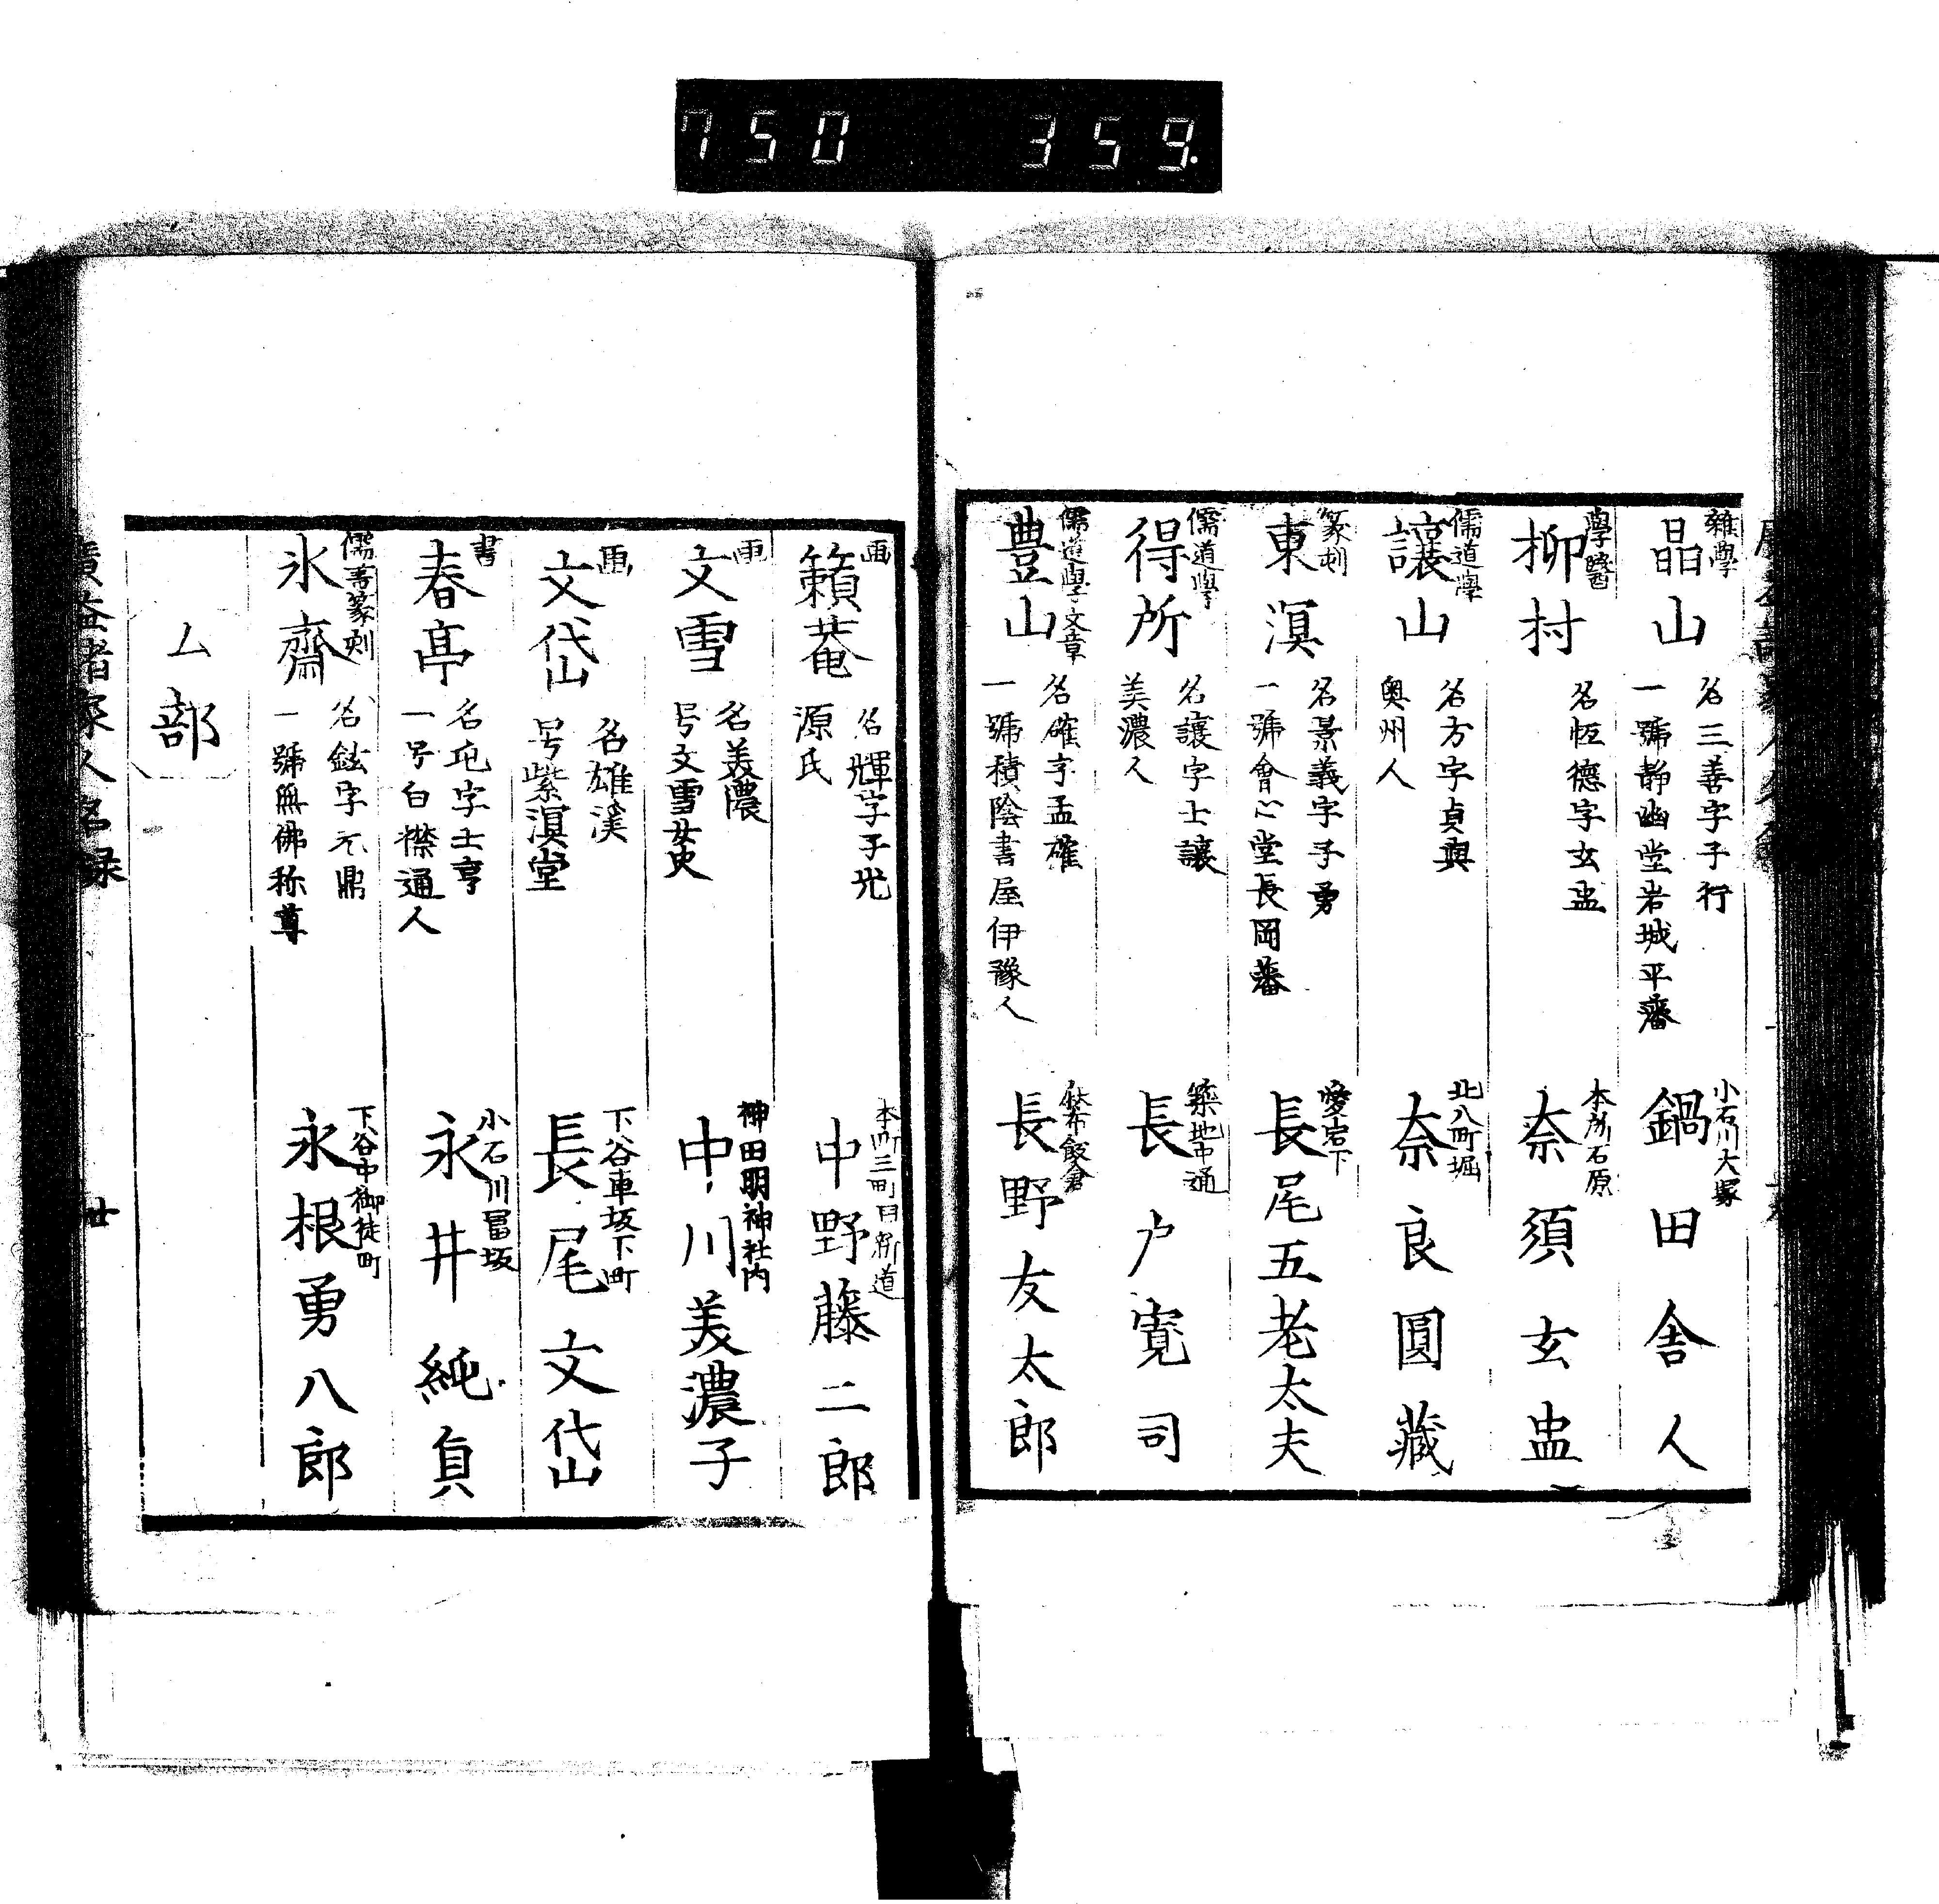 750 359
雜學
晶山
名三善字子行
一號靜幽堂岩城平藩
小石川大塚
鍋田舎人
學醫
柳村
名恆德字玄盅
本所石原
奈須玄盅
儒道學
讓山
名方字貞與
奥州人
北八町堀
奈良圓藏
篆刻
東溟
名景義字子勇
一號會心堂長岡藩
愛宕下
長尾五老太夫
儒道學
得所
名讓字士讓
美濃人
築地中通
長戸寛司
儒道學文章
豊山
名確字孟確
一號積陰書屋伊豫人
麻布飯倉
長野友太郎
画
籟菴
名輝字子光
源氏
本町三町目新道
中野藤二郎
画
文雪
名美濃
号文雪女史
神田明神社内
中川美濃子
画
文岱
名雄溪
号紫溟堂
下谷車坂下町
長尾文岱
書
春亭
名屯字士亨
一号白襟通人
小石川冨坂
永井純貞
儒書篆刻
氷齋
名鉉字元鼎
一號無佛称尊
下谷中御徒町
永根勇八郎
ム部
廣益諸家人名録
廿